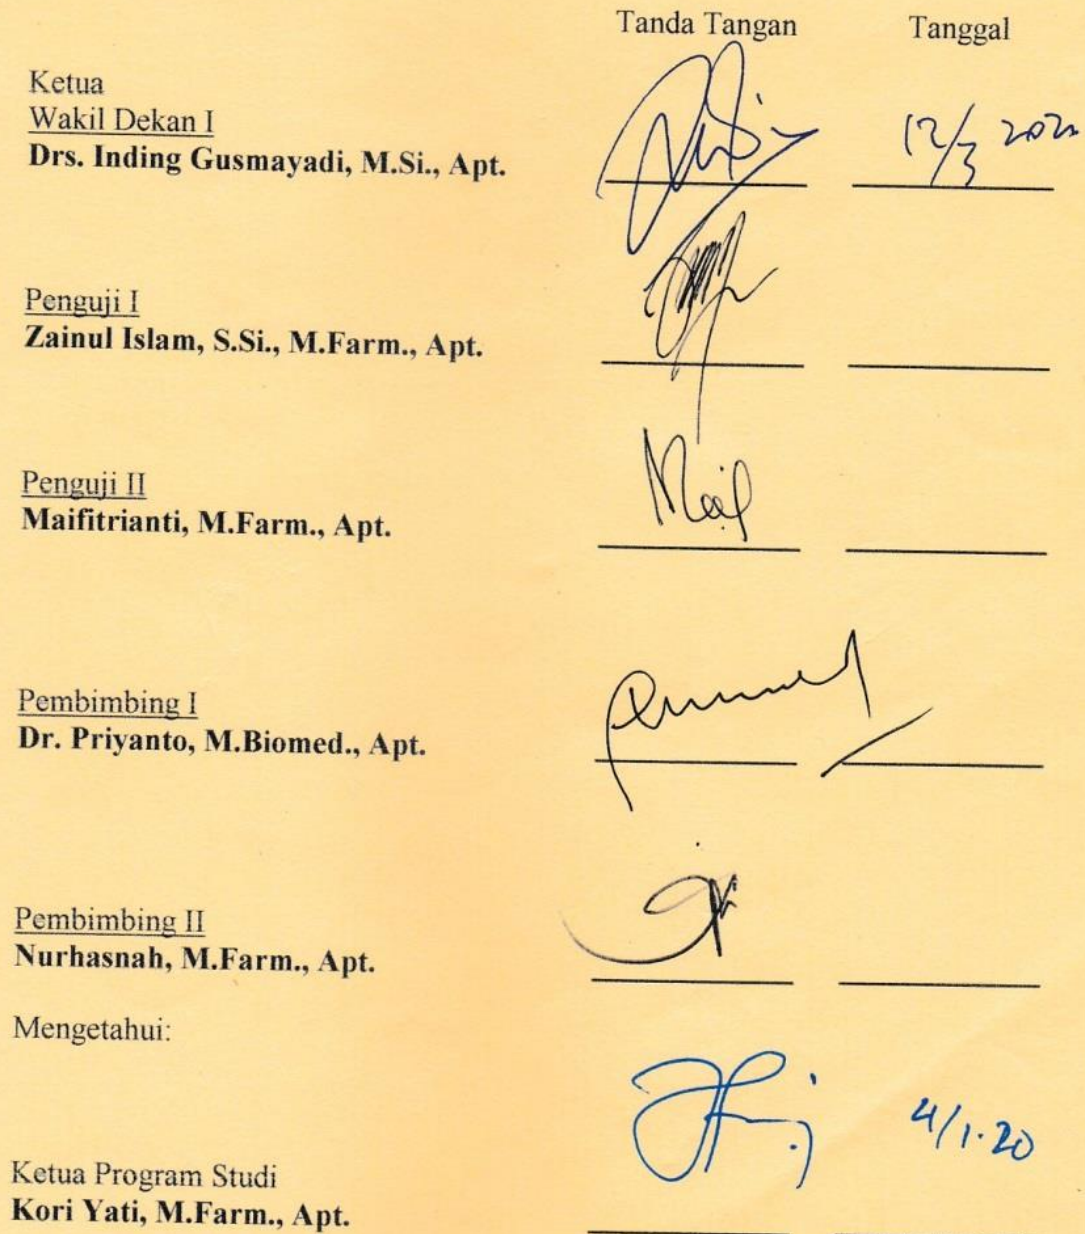 Tanda Tangan Tanggal
Ketua
Wakil Dekan I
Drs. Inding Gusmayadi, M.Si., Apt.
12/3 2020
Penguji I
Zainul Islam, S.Si., M.Farm., Apt.
Penguji II
Maifitrianti, M.Farm., Apt.
Pembimbing I
Dr. Priyanto, M.Biomed., Apt.
Pembimbing II
Nurhasnah, M.Farm., Apt.
Mengetahui:
4/1.20
Ketua Program Studi
Kori Yati, M.Farm., Apt.